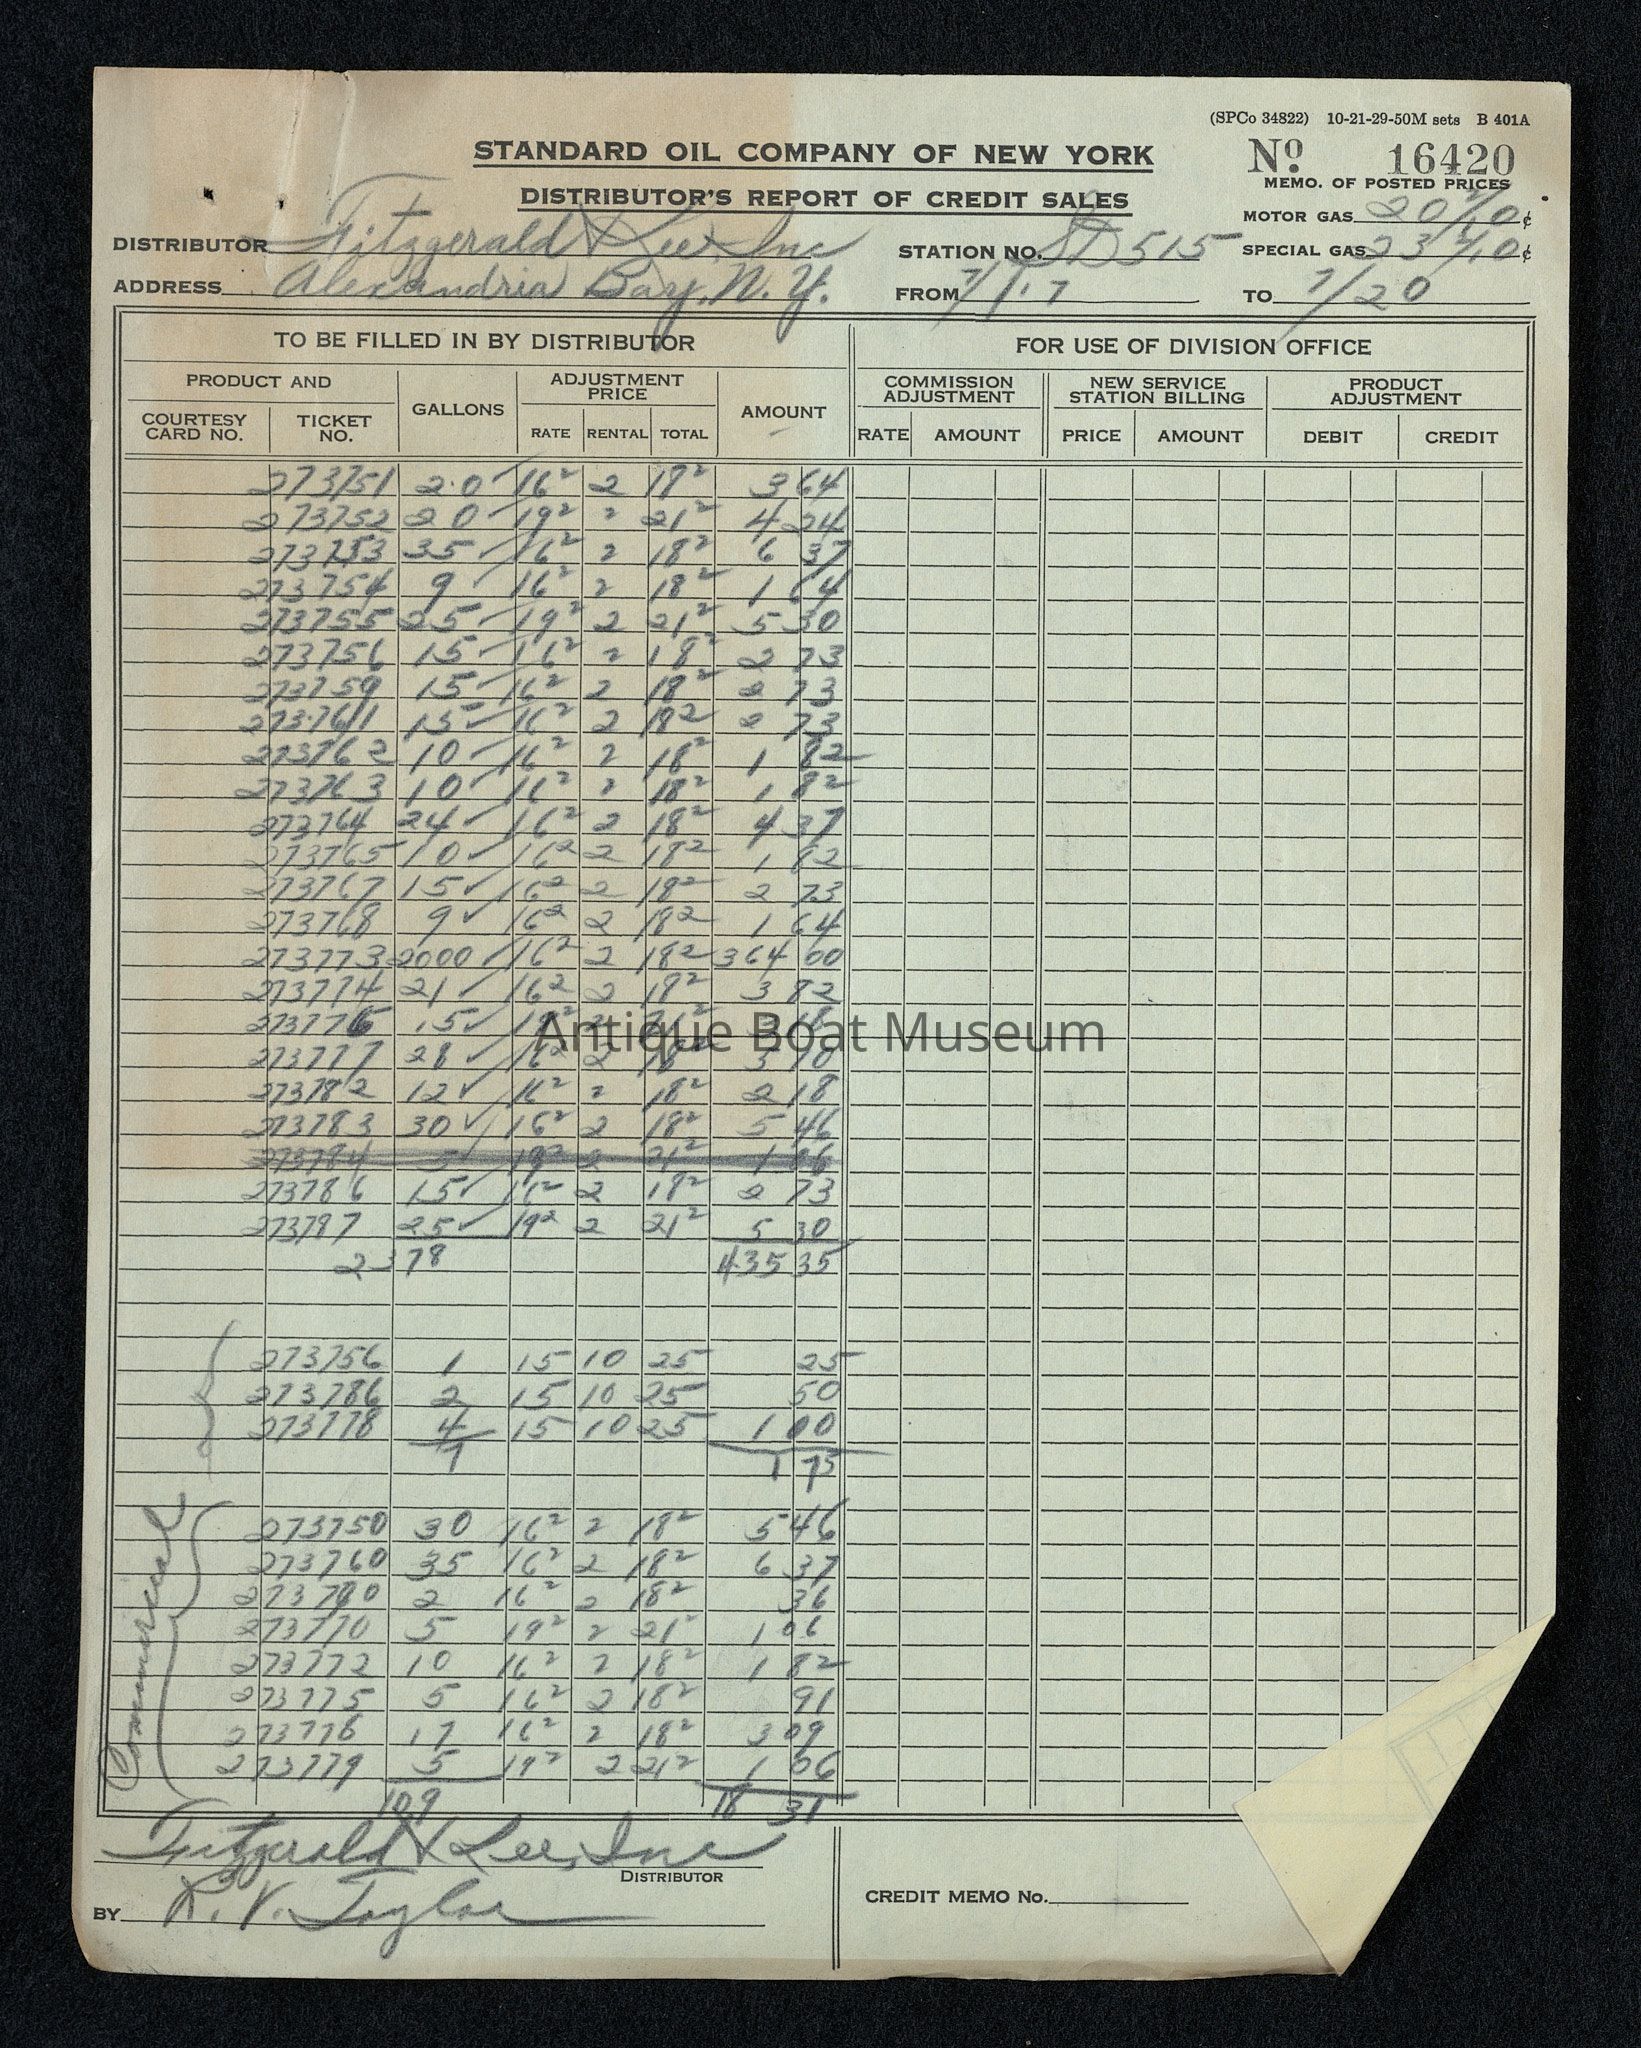 (SPCo 34822) 10-21-29-50M sets B 401A
STANDARD OIL COMPANY OF NEW YORK
Nº 16420
DISTRIBUTOR'S REPORT OF CREDIT SALES
MEMO. OF POSTED PRICES
MOTOR GAS 20 2/10 ¢
DISTRIBUTOR Fitzgerald & Lee, Inc STATION NO. SD 515 SPECIAL GAS 23 2/10 ¢
ADDRESS Alexandria Bay, N.Y. FROM 7/17 TO 7/20
TO BE FILLED IN BY DISTRIBUTOR FOR USE OF DIVISION OFFICE
PRODUCT AND GALLONS ADJUSTMENT PRICE AMOUNT COMMISSION ADJUSTMENT NEW SERVICE STATION BILLING PRODUCT ADJUSTMENT
COURTESY CARD NO. TICKET NO. RATE RENTAL TOTAL RATE AMOUNT PRICE AMOUNT DEBIT CREDIT
273751 20 16² 2 18² 3 64
273752 20 19² 2 21² 4 24
273753 35 16² 2 18² 6 37
273754 9 16² 2 18² 1 64
273755 25 19² 2 21² 5 30
273756 15 16² 2 18² 2 73
273759 15 16² 2 18² 2 73
273761 15 16² 2 18² 2 73
273762 10 16² 2 18² 1 82
273763 10 16² 2 18² 1 82
273764 24 16² 2 18² 4 37
273765 10 16² 2 18² 1 82
273767 15 16² 2 18² 2 73
273768 9 16² 2 18² 1 64
273773 2000 16² 2 18² 364 00
273774 21 16² 2 18² 3 82
273776 15 19² 2 21² 3 18
273777 28 16² 2 18² 5 10
273782 12 16² 2 18² 2 18
273783 30 16² 2 18² 5 46
273784 5 19² 2 21² 1 06
273786 15 16² 2 18² 2 73
273787 25 19² 2 21² 5 30
2378 435 35
273756 1 15 10 25 25
273786 2 15 10 25 50
273778 4 15 10 25 1 00
7 1 75
Commercial
273750 30 16² 2 18² 5 46
273760 35 16² 2 18² 6 37
2 16² 2 18² 36
273770 5 19² 2 21² 1 06
273772 10 16² 2 18² 1 82
273775 5 16² 2 18² 91
273778 17 16² 2 18² 3 09
273779 5 19² 2 21² 1 06
109 18 31
Fitzgerald & Lee, Inc
DISTRIBUTOR
BY R. V. Taylor
CREDIT MEMO No.
Antique Boat Museum